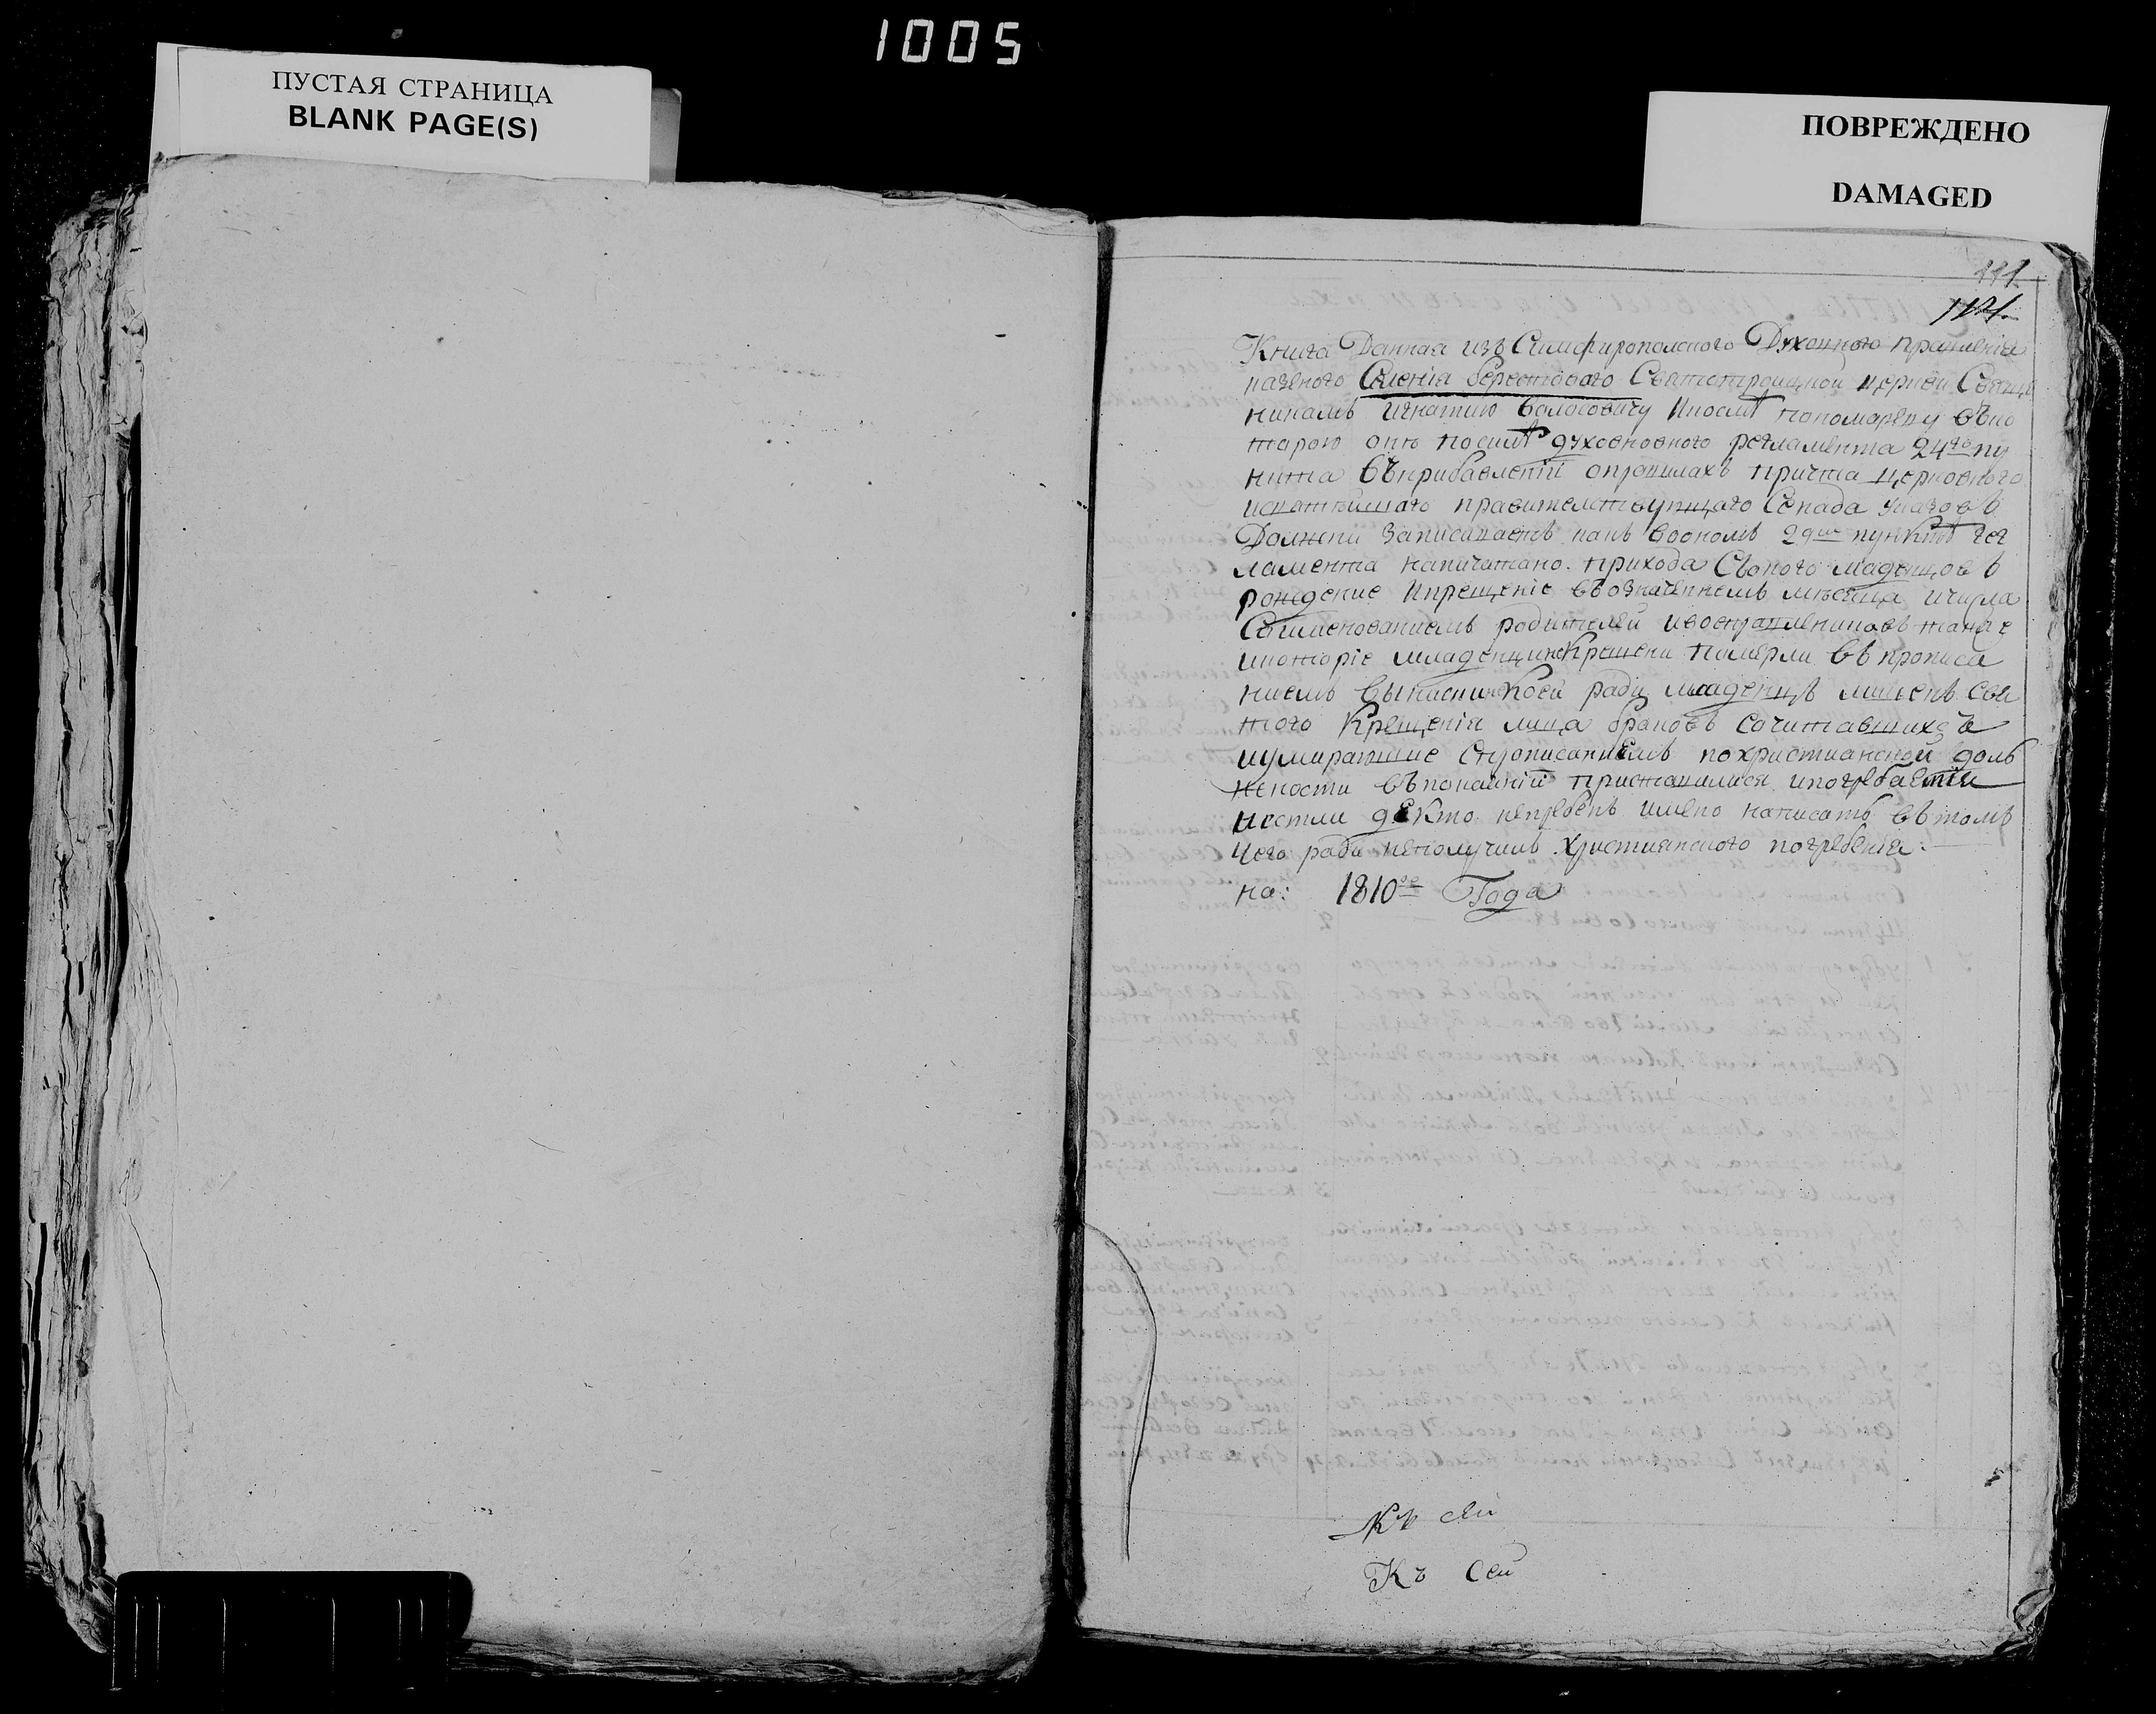 1005
ПУСТАЯ СТРАНИЦА
BLANK PAGE(S)
ПОВРЕЖДЕНО
DAMAGED
111
Книга Данная изъ Симфиропольского Духовного правленія
казеного Селенія берестового Святотроицкой церкви Свяще
никамъ игнатию
торою они по силѣ духовновного регламента 24го пу
нкта въприбавленіи оправилахъ причта церковного
исвятѣйшаго правителствующаго Сенада указовъ
Должени записивать какъ воономъ 29мъ пунктѣ рег
ламента напичатано прихода Своего младенцовъ
рождение икрещеніе въозначениемъ мѣсяца ичисла
Соименованиемъ родителей ивосприемниковъ также
икоторіе младенци некрещени померли въ прописа
ниемъ вини коей ради младенцъ лишенъ свя
того Крещенія лица браковъ сочитавшихсъ
иумирающие Спрописаниемъ похристианской долъ
жности въпокаяніи приставилися ипогребаетъся
иестли де кто непребенъ имено написать въ томъ
чего ради неполучилъ християнского погребенія
на: 1810го Года
Къ сей
Къ Сей